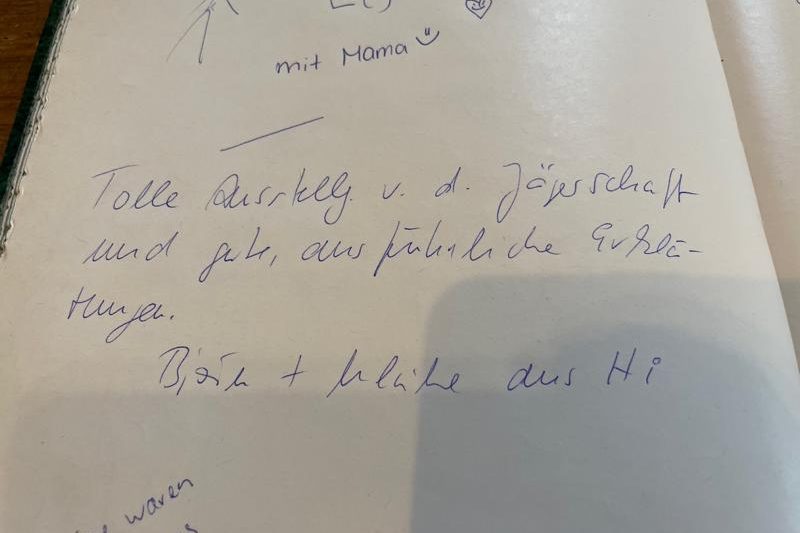 mit Mama
Tolle Ausstellg. v. d. Jägerschaft
und gute, ausführliche Erklä-
rungen.
Björn + aus Hi
waren